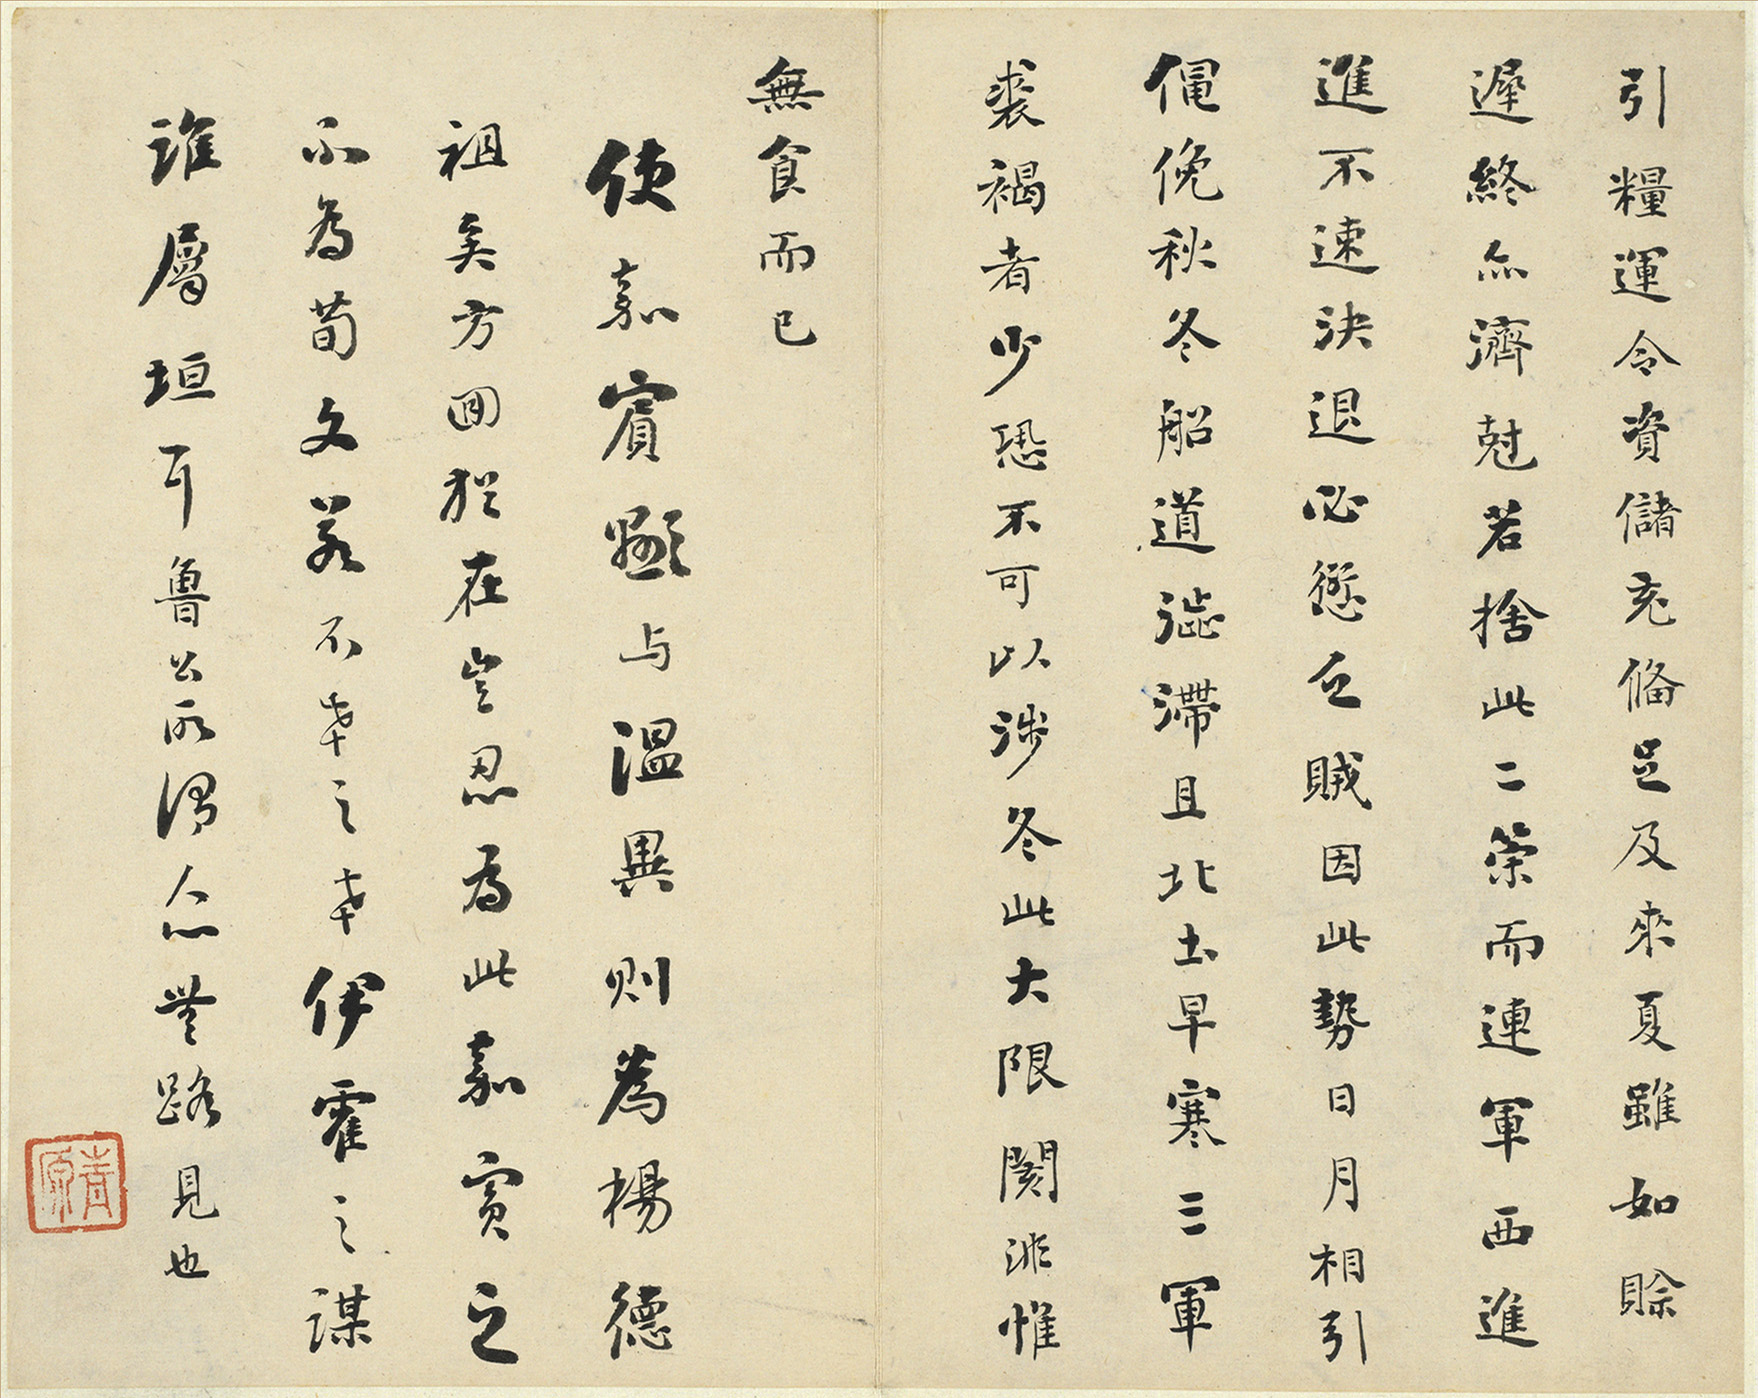 引糧運令資儲充俻足及來夏雖如賒
遲終亦濟尅若捨此二策而連軍西進
進不速決退必愆乏賊因此勢日月相引
僶俛秋冬船道澁滯且北土早寒三軍
裘褐者少恐不可以涉冬此大限閡非惟
無食而已
使嘉賓顯与溫異則為楊德
祖矣方回猶在豈忍為此嘉賓之
不為荀文若不幸之幸伊霍之謀
誰屬垣耳魯公所謂亦無路見也
青原